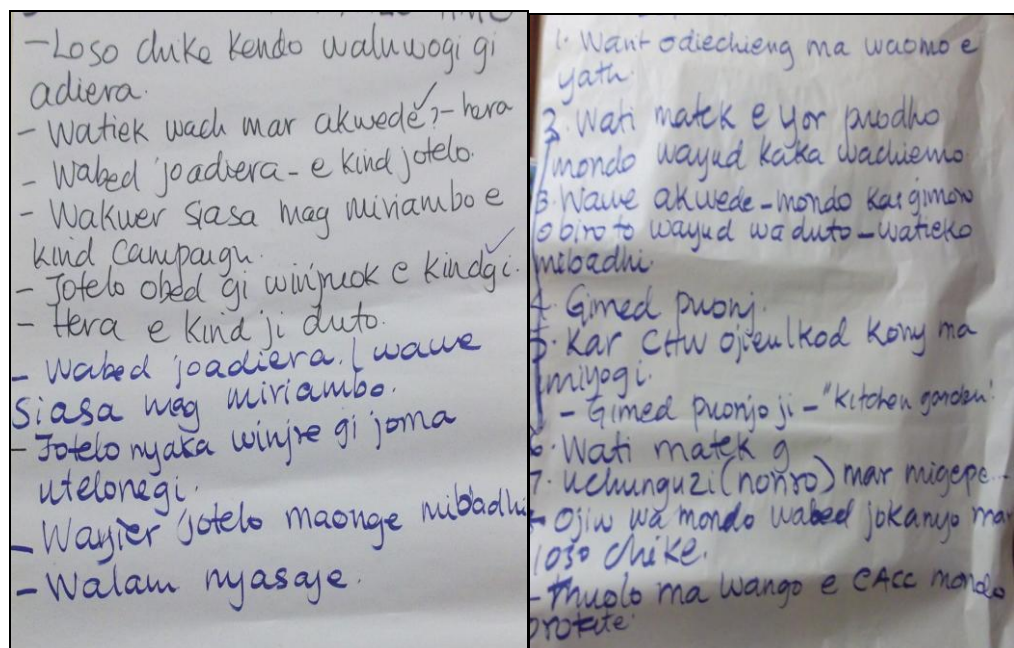 - Loso chike kendo waluwogi gi
adiera.
- Watiek wach mar akwede ?- hera
- Wabed joadiera - e kind jotelo.
- Wakwer siasa mag miriambo e
kind campaign.
- Jotelo obed gi winjruok e kindgi.
- Hera e kind ji duto.
- Wabed joadiera. / wawe
siasa mag miriambo.
- Jotelo nyaka winjre gi joma
utelonegi.
- Wayier jotelo maonge mibadhi
- Walam nyasaje.
1. Want odiechieng ma waomo e
yath.
2. Wati matek e yor puodho
mondo wayud kaka wachiemo.
3. Wawe akwede - mondo kar gimoro
obiro to wayud waduto - watieko
mibadhi.
4. Gimed puonj.
5. Kar CHW ojieulkod kony ma
imiyogi.
- Gimed puonjo ji - "kitchen garden".
6. Wati matek g
7. Uchunguzi (nonro) mar migepe..
- Ojiw wa mondo wabed jokanyo mar
loso chike.
- Thuolo ma wango e CACC mondo